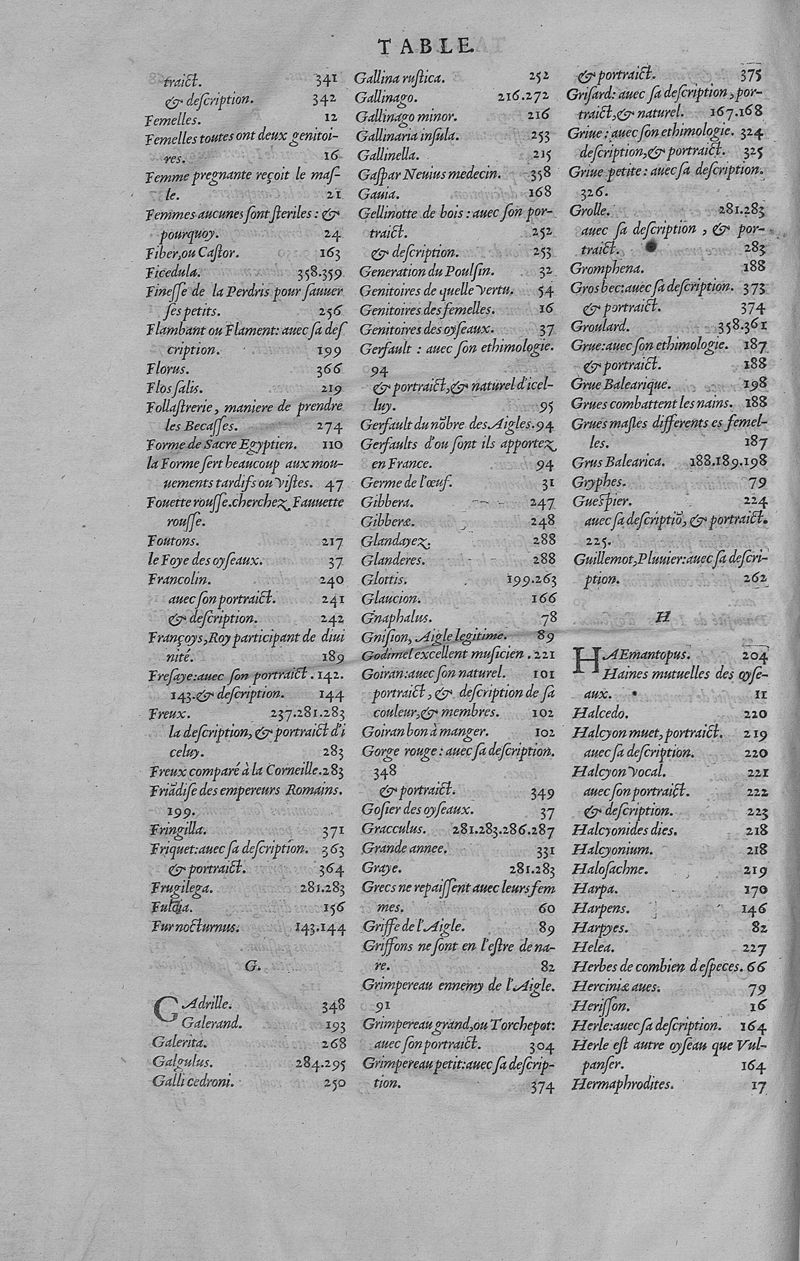 TABLE.
traict. 341
& deſcription. 342
Femelles. 12
Femelles toutes ont deux genitoi-
res. 16
Femme pregnante reçoit le maſ-
le. 21
Femmes aucunes ſont ſteriles : &
pourquoy. 24
Fiber, ou Caſtor. 163
Ficedula. 358.359
Fineſſe de la Perdris pour ſauuer
ſes petits. 256
Flambant ou Flament: auec ſa deſ
cription. 199
Florus. 366
Flos ſalis. 219
Follaſtrerie, maniere de prendre
les Becaſſes. 274
Forme de Sacre Egyptien. 110
la Forme ſert beaucoup aux mou-
uements tardifs ou viſtes. 47
Fouette rouſſe. cherchez Fauuette
rouſſe.
Foutons. 217
le Foye des oyſeaux. 37
Francolin. 240
auec ſon portraict. 241
& deſcription. 242
Françoys, Roy participant de diui
nité. 189
Freſaye: auec ſon portraict. 142.
143. & deſcription. 144
Freux. 237.281.283
la deſcription, & portraict d'i
celuy. 283
Freux comparé à la Corneille. 283
Friādiſe des empereurs Romains.
199.
Fringilla. 371
Friquet: auec ſa deſcription. 363
& portraict. 364
Frugilega. 281.283
Fulica. 156
Fur nocturnus. 143.144
G.
GAdrille. 348
Galerand. 193
Galerita. 268
Galgulus. 284.295
Galli cedroni. 250
Gallina ruſtica. 252
Gallinago. 216.272
Gallinago minor. 216
Gallinaria inſula. 253
Gallinella. 215
Gaſpar Neuius medecin. 358
Gauia. 168
Gellinotte de bois : auec ſon por-
traict. 252
& deſcription. 253
Generation du Poulſin. 32
Genitoires de quelle vertu. 54
Genitoires des femelles. 16
Genitoires des oyſeaux. 37
Gerfault : auec ſon ethimologie.
94
& portraict, & naturel d'icel-
luy. 95
Gerfault du nōbre des Aigles. 94
Gerfaults d'ou ſont ils apportez
en France. 94
Germe de l'œuf. 31
Gibbera. 247
Gibberæ. 248
Glandayez. 288
Glanderes. 288
Glottis. 199.263
Glaucion. 166
Gnaphalus. 78
Gniſion, Aigle legitime. 89
Godimel excellent muſicien. 221
Goiran: auec ſon naturel. 101
portraict, & deſcription de ſa
couleur, & membres. 102
Goiran bon à manger. 102
Gorge rouge : auec ſa deſcription.
348
& portraict. 349
Goſier des oyſeaux. 37
Gracculus. 281.283.286.287
Grande annee. 331
Graye. 281.283
Grecs ne repaiſſent auec leurs fem
mes. 60
Griffe de l'Aigle. 89
Griffons ne ſont en l'eſtre de na-
re. 82
Grimpereau ennemy de l'Aigle.
91
Grimpereau grand, ou Torchepot:
auec ſon portraict. 304
Grimpereau petit: auec ſa deſcrip-
tion. 374
& portraict. 375
Griſard: auec ſa deſcription, por-
traict, & naturel. 167.168
Griue : auec ſon ethimologie. 324
deſcription, & portraict. 325
Griue petite: auec ſa deſcription.
326.
Grolle. 281.283
auec ſa deſcription, & por-
traict. 283
Gromphena. 188
Gros bec: auec ſa deſcription. 373
& portraict. 374
Groulard. 358.361
Grue: auec ſon ethimologie. 187
& portraict. 188
Grue Balearique. 198
Grues combattent les nains. 188
Grues maſles differents es femel-
les. 187
Grus Balearica. 188.189.198
Gryphes. 79
Gueſpier. 224
auec ſa deſcriptiō, & portraict.
225.
Guillemot, Pluuier: auec ſa deſcri-
ption. 262
H
HAEmantopus. 204
Haines mutuelles des oyſe-
aux. 11
Halcedo. 220
Halcyon muet, portraict. 219
auec ſa deſcription. 220
Halcyon vocal. 221
auec ſon portraict. 222
& deſcription. 223
Halcyonides dies. 218
Halcyonium. 218
Haloſachne. 219
Harpa. 170
Harpens. 146
Harpyes. 82
Helea. 227
Herbes de combien d'eſpeces. 66
Herciniæ aues. 79
Heriſſon. 16
Herle: auec ſa deſcription. 164
Herle eſt autre oyſeau que Vul-
panſer. 164
Hermaphrodites. 17